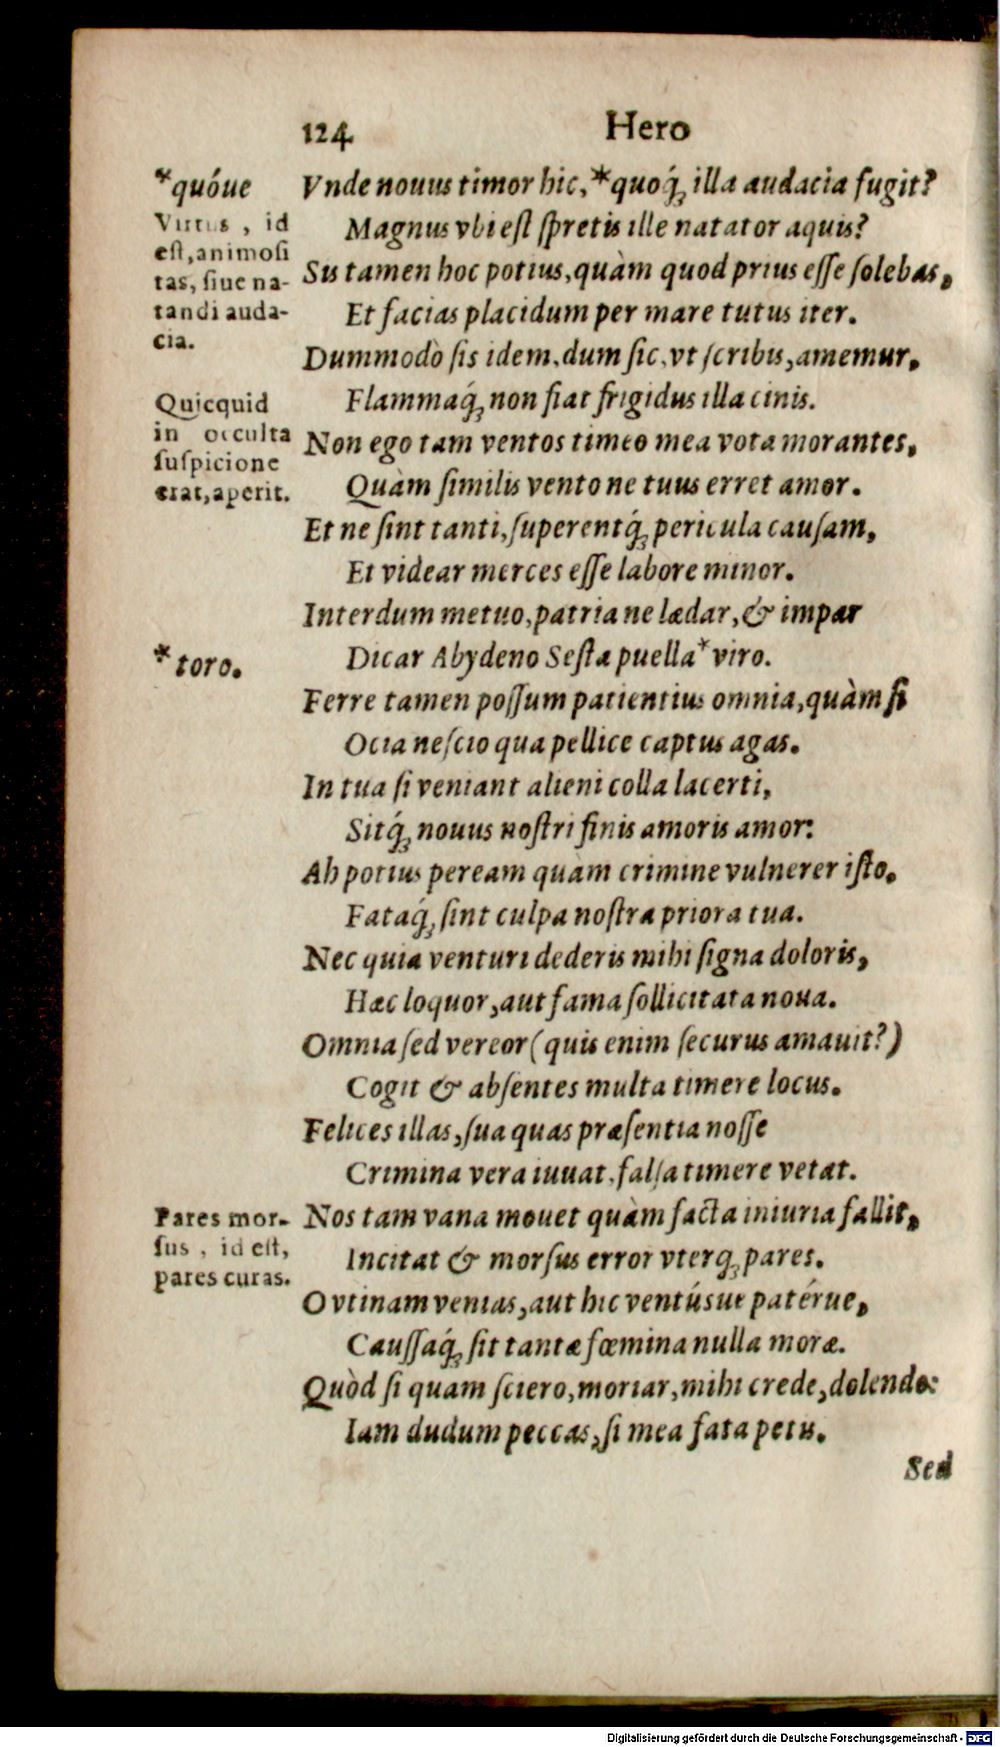 124 Hero
*quóue
Vnde nouus timor hic, *quoq́; illa audacia fugit?
Virtus, id
est, animosi
tas, siue na-
tandi auda-
cia.
Magnus vbi est spretis ille natator aquis?
Sis tamen hoc potius, quàm quod prius esse solebas,
Et facias placidum per mare tutus iter.
Dummodò sis idem, dum sic, vt scribis, amemur,
Quicquid
in occulta
suspicione
erat, aperit.
Flammaq́; non fiat frigidus illa cinis.
Non ego tam ventos timeo mea vota morantes,
Quàm similis vento ne tuus erret amor.
Et ne sint tanti, superentq́; pericula causam,
Et videar merces esse labore minor.
Interdum metuo, patria ne lædar, & impar
*toro.
Dicar Abydeno Sesta puella *viro.
Ferre tamen possum patientius omnia, quàm si
Ocia nescio qua pellice captus agas.
In tua si veniant alieni colla lacerti,
Sitq́; nouus nostri finis amoris amor:
Ah potius peream quàm crimine vulnerer isto,
Fataq́; sint culpa nostra priora tua.
Nec quia venturi dederis mihi signa doloris,
Hæc loquor, aut fama sollicitata noua.
Omnia sed vereor (quis enim securus amauit?)
Cogit & absentes multa timere locus.
Felices illas, sua quas præsentia nosse
Crimina vera iuuat, falsa timere vetat.
Pares mor-
sus, id est,
pares curas.
Nos tam vana mouet quàm facta iniuria fallit,
Incitat & morsus error vterq; pares.
O vtinam venias, aut hic ventúsue patérue,
Caussaq́; sit tantæ fœmina nulla moræ.
Quòd si quam sciero, moriar, mihi crede, dolendo:
Iam dudum peccas, si mea fata petis.
Sed
Digitalisierung gefördert durch die Deutsche Forschungsgemeinschaft - DFG